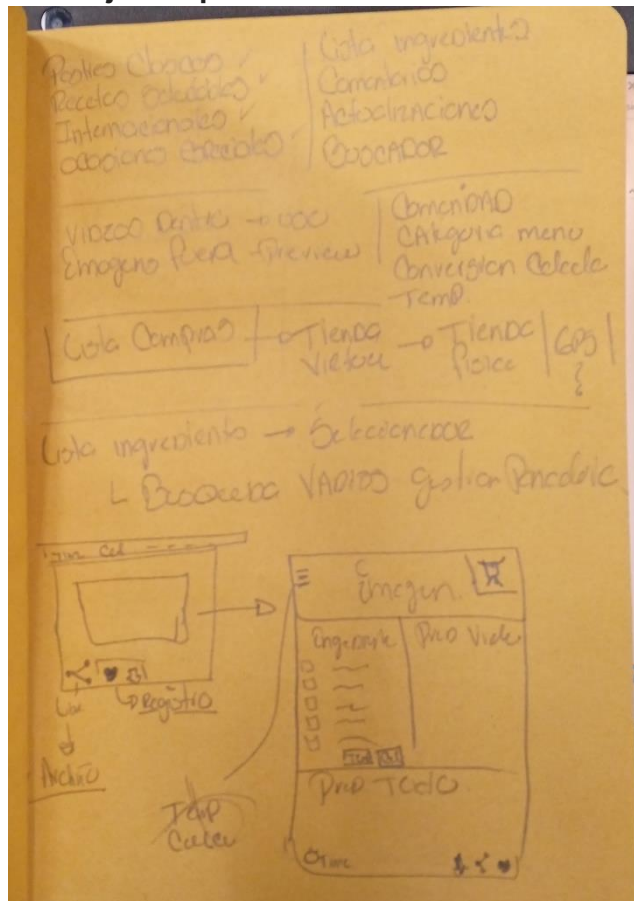 Postres Clasicos ✓
Recetas Saludables ✓
Internacionales ✓
ocasiones especiales ✓
Lista ingredientes
Comentarios
Actualizaciones
BUSCADOR
VIDEOS Dentro → uso
Imagenes Fuera → Preview
ComuniDAD
CAtegoria menu
Conversion
Temp.
Lista Compras → Tienda Virtual → Tienda Fisica | GPS |
Lista ingrediente → Seleccionador
Busqueda VARIOS gestion
Cel
Registro
Link
Archivo
Imagen
Ingrediente
Paso Video
Paso Todo
Temp
Time